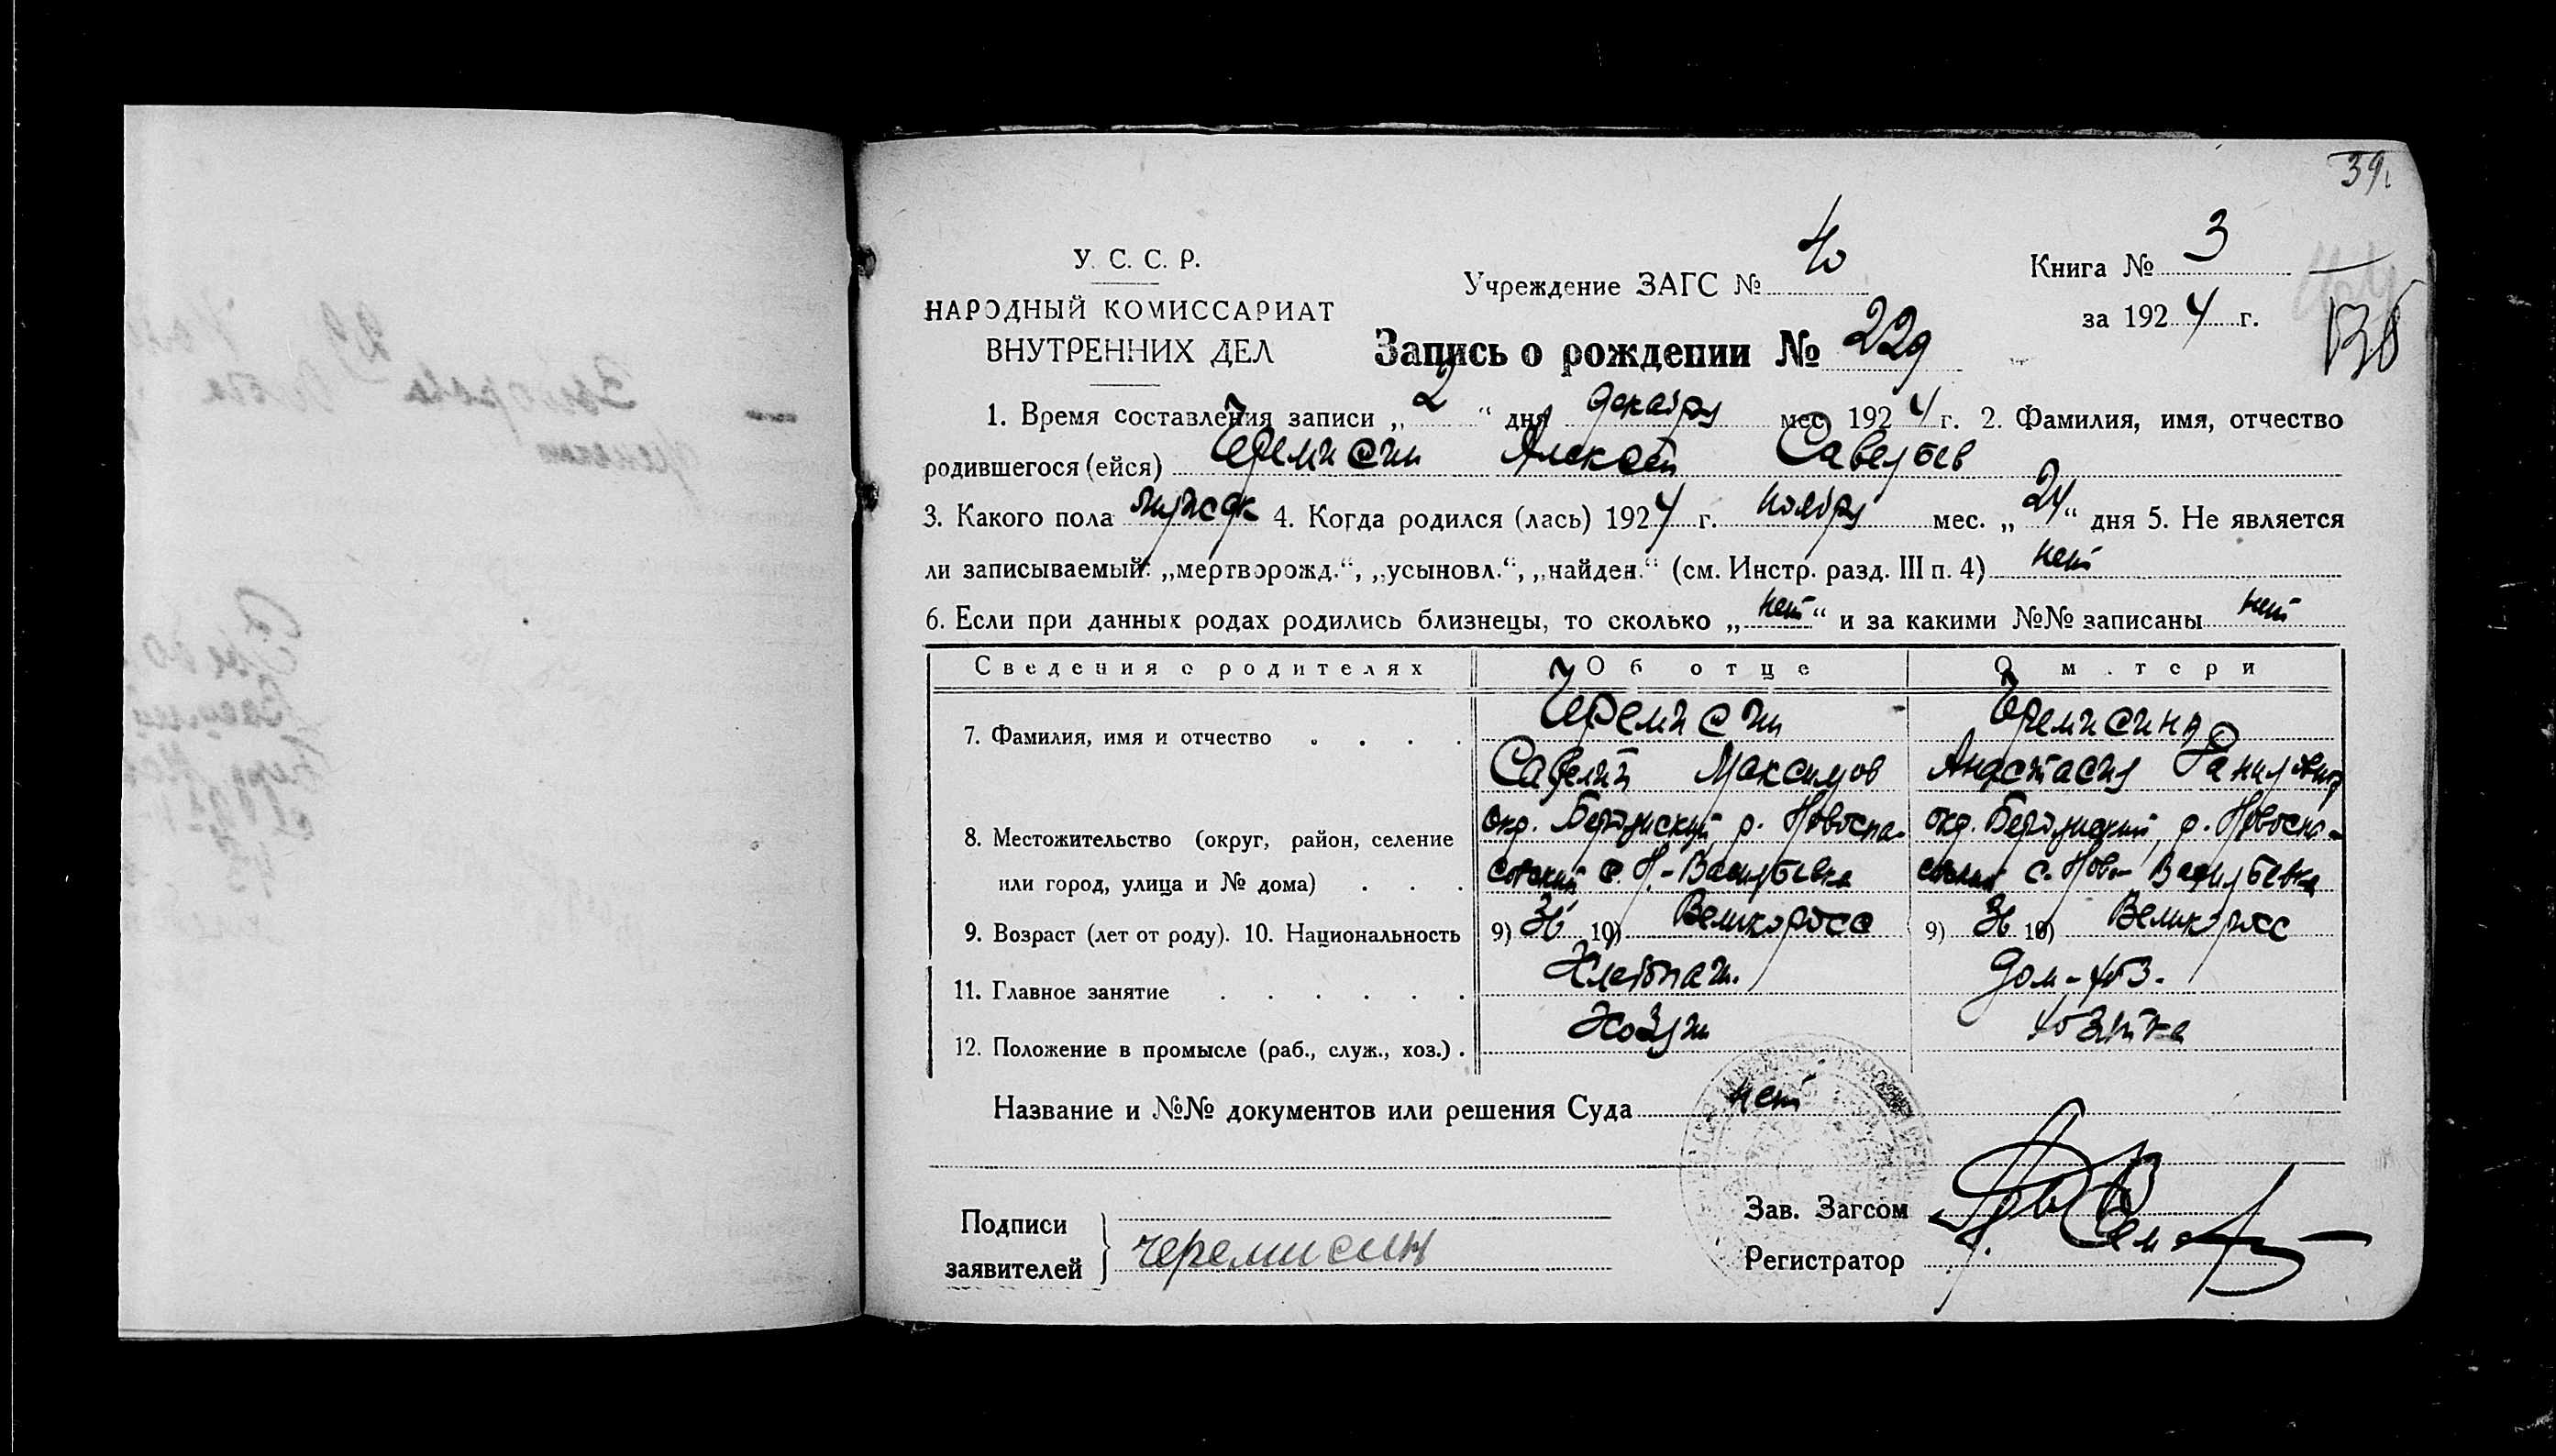 39.
У. С. С. Р.
НАРОДНЫЙ КОМИССАРИАТ
ВНУТРЕННИХ ДЕЛ
Учреждение ЗАГС №
Книга № 3
за 1924 г.
Запись о рождении № 229
1. Время составления записи „2“ дня декабря мес. 1924 г. 2. Фамилия, имя, отчество
родившегося (ейся) Черемисин Алексей Савельев
3. Какого пола мужск 4. Когда родился (лась) 1924 г. ноября мес. „24“ дня 5. Не является
ли записываемый: „мертворожд.“, „усыновл.“, „найден.“ (см. Инстр. разд. III п. 4) нет
6. Если при данных родах родились близнецы, то сколько „нет“ и за какими №№ записаны нет
Сведения о родителях Об отце О м тери
7. Фамилия, имя и отчество Черемисин Черемисина
Савелий Максимов Анастасия
8. Местожительство (округ, район, селение окр. Бердянский, р. Новоспа- окр. Бердянский, р. Новоспа-
или город, улица и № дома) совский с. Н.-Васильевка совский с. Ново-Васильевка
9. Возраст (лет от роду). 10. Национальность 9) 36 10) Великоросс 9) 36 10) Великоросс
11. Главное занятие Хлебопаш. дом-хоз.
12. Положение в промысле (раб., служ., хоз.) Хозяин хозяйка
Название и №№ документов или решения Суда нет
Подписи
заявителей черемисин
Зав. Загсом
Регистратор